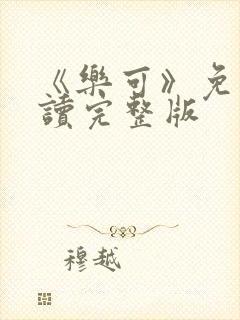 《樂可》免
讀完整版
穆越